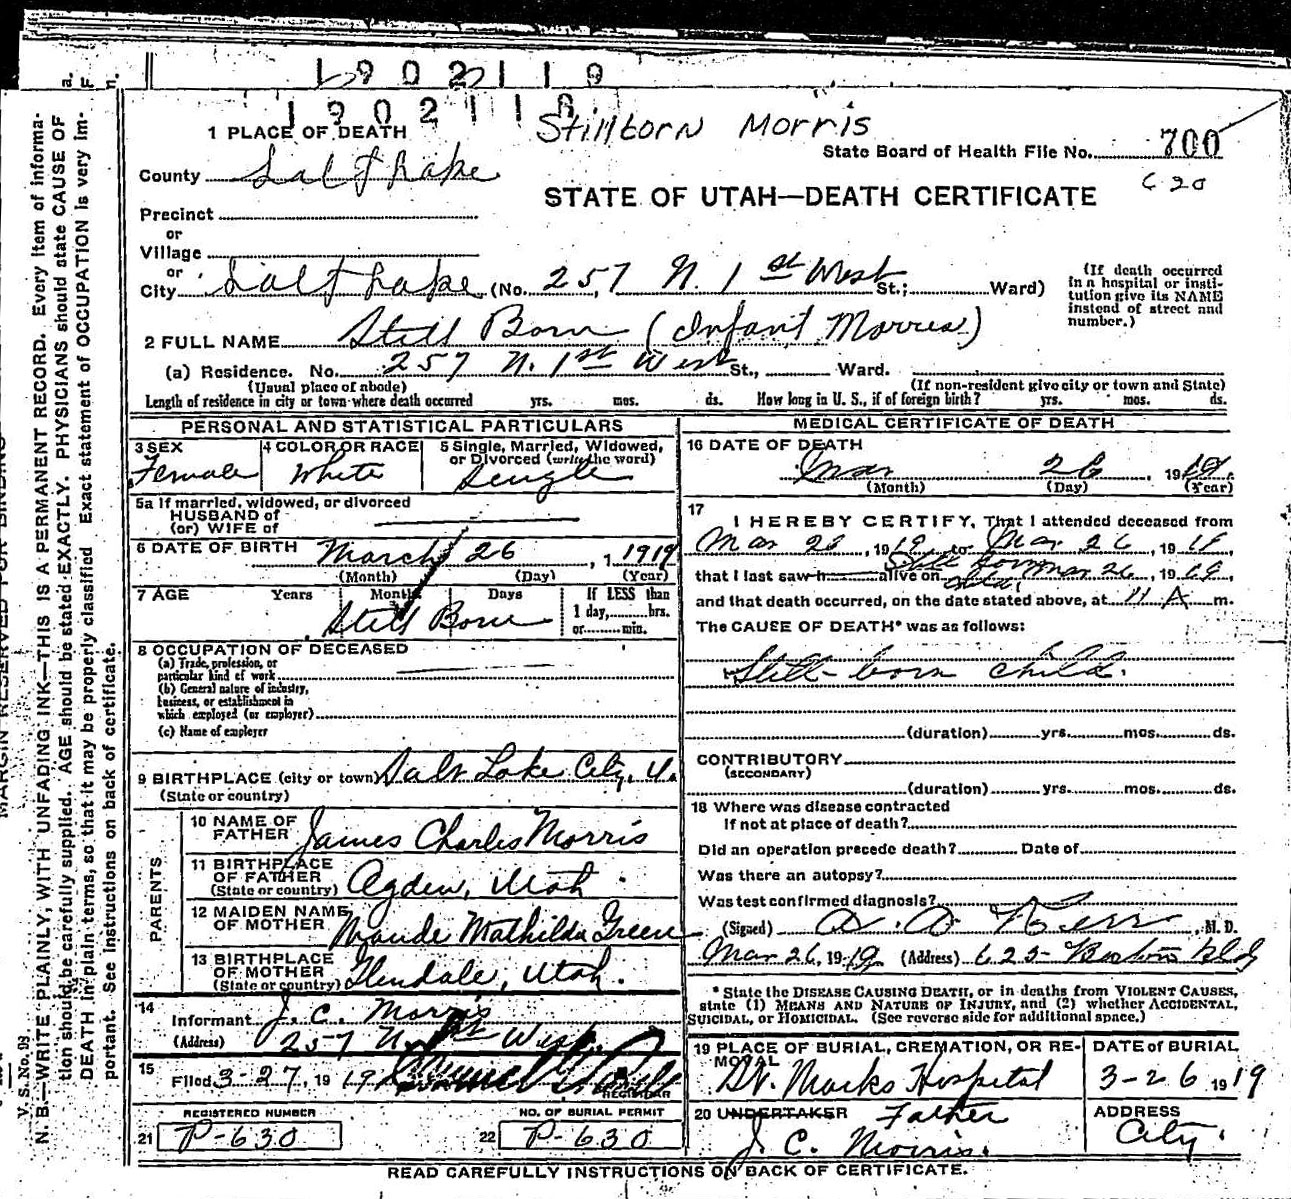 1902119
1902118
Stillborn Morris
1 PLACE OF DEATH
State Board of Health File No. 700
County Salt Lake
C 20
STATE OF UTAH—DEATH CERTIFICATE
Precinct
or
Village
or
City Salt Lake (No. 257 N. 1st West St.; Ward)
(If death occurred in a hospital or insti-
tution give its NAME
instead of street and
number.)
2 FULL NAME Still Born (Infant Morris)
(a) Residence. No. 257 N. 1st West St., Ward.
(Usual place of abode) (If non-resident give city or town and State)
Length of residence in city or town where death occurred yrs. mos. ds. How long in U. S., if of foreign birth? yrs. mos. ds.
PERSONAL AND STATISTICAL PARTICULARS
3 SEX
Female
4 COLOR OR RACE
White
5 Single, Married, Widowed,
or Divorced (write the word)
Single
5a If married, widowed, or divorced
HUSBAND of
(or) WIFE of
6 DATE OF BIRTH March 26, 1 1919
(Month) (Day) (Year)
7 AGE Years Months Days
Still Born
If LESS than
1 day, hrs.
or min.
8 OCCUPATION OF DECEASED
(a) Trade, profession, or
particular kind of work
(b) General nature of industry,
business, or establishment in
which employed (or employer)
(c) Name of employer
9 BIRTHPLACE (city or town) Salt Lake City, U.
(State or country)
PARENTS
10 NAME OF
FATHER James Charles Morris
11 BIRTHPLACE
OF FATHER
(State or country) Ogden, Utah
12 MAIDEN NAME
OF MOTHER Maude Mathilda Green
13 BIRTHPLACE
OF MOTHER
(State or country) Glendale, Utah.
14
Informant J. C. Morris
(Address) 257 N. 1st West
15
Filed 3-27, 1919
REGISTRAR
REGISTERED NUMBER
21 P-630
NO. OF BURIAL PERMIT
22 P-630
MEDICAL CERTIFICATE OF DEATH
16 DATE OF DEATH
Mar 26, 1919.
(Month) (Day) (Year)
17
I HEREBY CERTIFY, That I attended deceased from
Mar 26, 1919 to Mar 26, 1919,
that I last saw h alive on Still born child, Mar 26, 1919,
and that death occurred, on the date stated above, at 11 A m.
The CAUSE OF DEATH* was as follows:
Still-born child.
(duration) yrs. mos. ds.
CONTRIBUTORY
(SECONDARY)
(duration) yrs. mos. ds.
18 Where was disease contracted
If not at place of death?
Did an operation precede death? Date of
Was there an autopsy?
Was test confirmed diagnosis?
(Signed) Kerr, M. D.
Mar 26, 1919. (Address) 625 Boston Bldg
* State the DISEASE CAUSING DEATH, or in deaths from VIOLENT CAUSES,
state (1) MEANS AND NATURE OF INJURY, and (2) whether ACCIDENTAL,
SUICIDAL, or HOMICIDAL. (See reverse side for additional space.)
19 PLACE OF BURIAL, CREMATION, OR RE-
MOVAL
St. Marks Hospital
DATE of BURIAL
3-26 1919
20 UNDERTAKER Father
J. C. Morris.
ADDRESS
City.
READ CAREFULLY INSTRUCTIONS ON BACK OF CERTIFICATE.
MARGIN RESERVED FOR BINDING
V. S. No. 98.
N. B.—WRITE PLAINLY, WITH UNFADING INK—THIS IS A PERMANENT RECORD. Every item of informa-
tion should be carefully supplied. AGE should be stated EXACTLY. PHYSICIANS should state CAUSE OF
DEATH in plain terms, so that it may be properly classified. Exact statement of OCCUPATION is very im-
portant. See instructions on back of certificate.